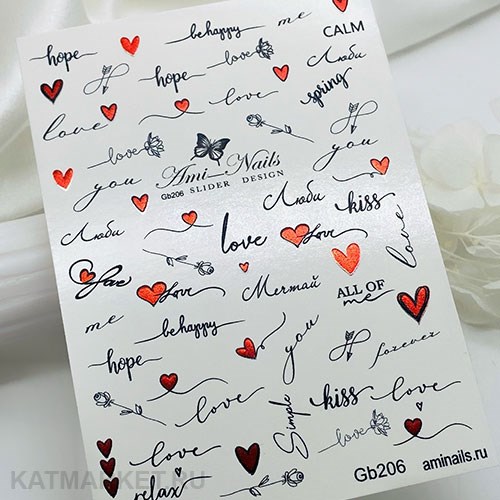 hope
be happy
me
CALM
hope
love
Люби
spring
love
love
you
love
you
Ami Nails
Gb206 SLIDER DESIGN
Люби
Люби
kiss
love
love
Love
Love
Мечтай
ALL OF
me
me
be happy
you
forever
hope
love
Simple
kiss
love
love
love
relax
Gb206 aminails.ru
KATMARKET.RU